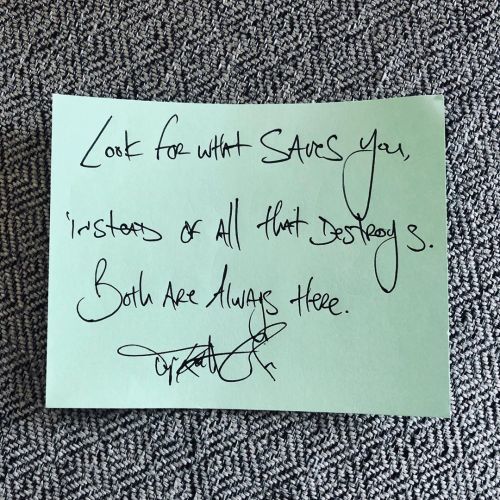 Look for what saves you,
instead of all that destroys.
Both are always here.